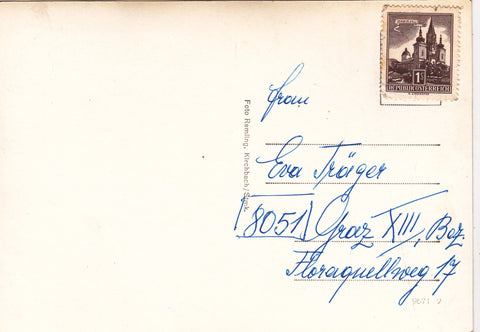 MARIAZELL
1S
REPUBLIK ÖSTERREICH
Foto Remling, Kirchbach/Stmk.
Frau
Eva Träger
8051 Graz XIII, Bez.
Floraquellweg 17